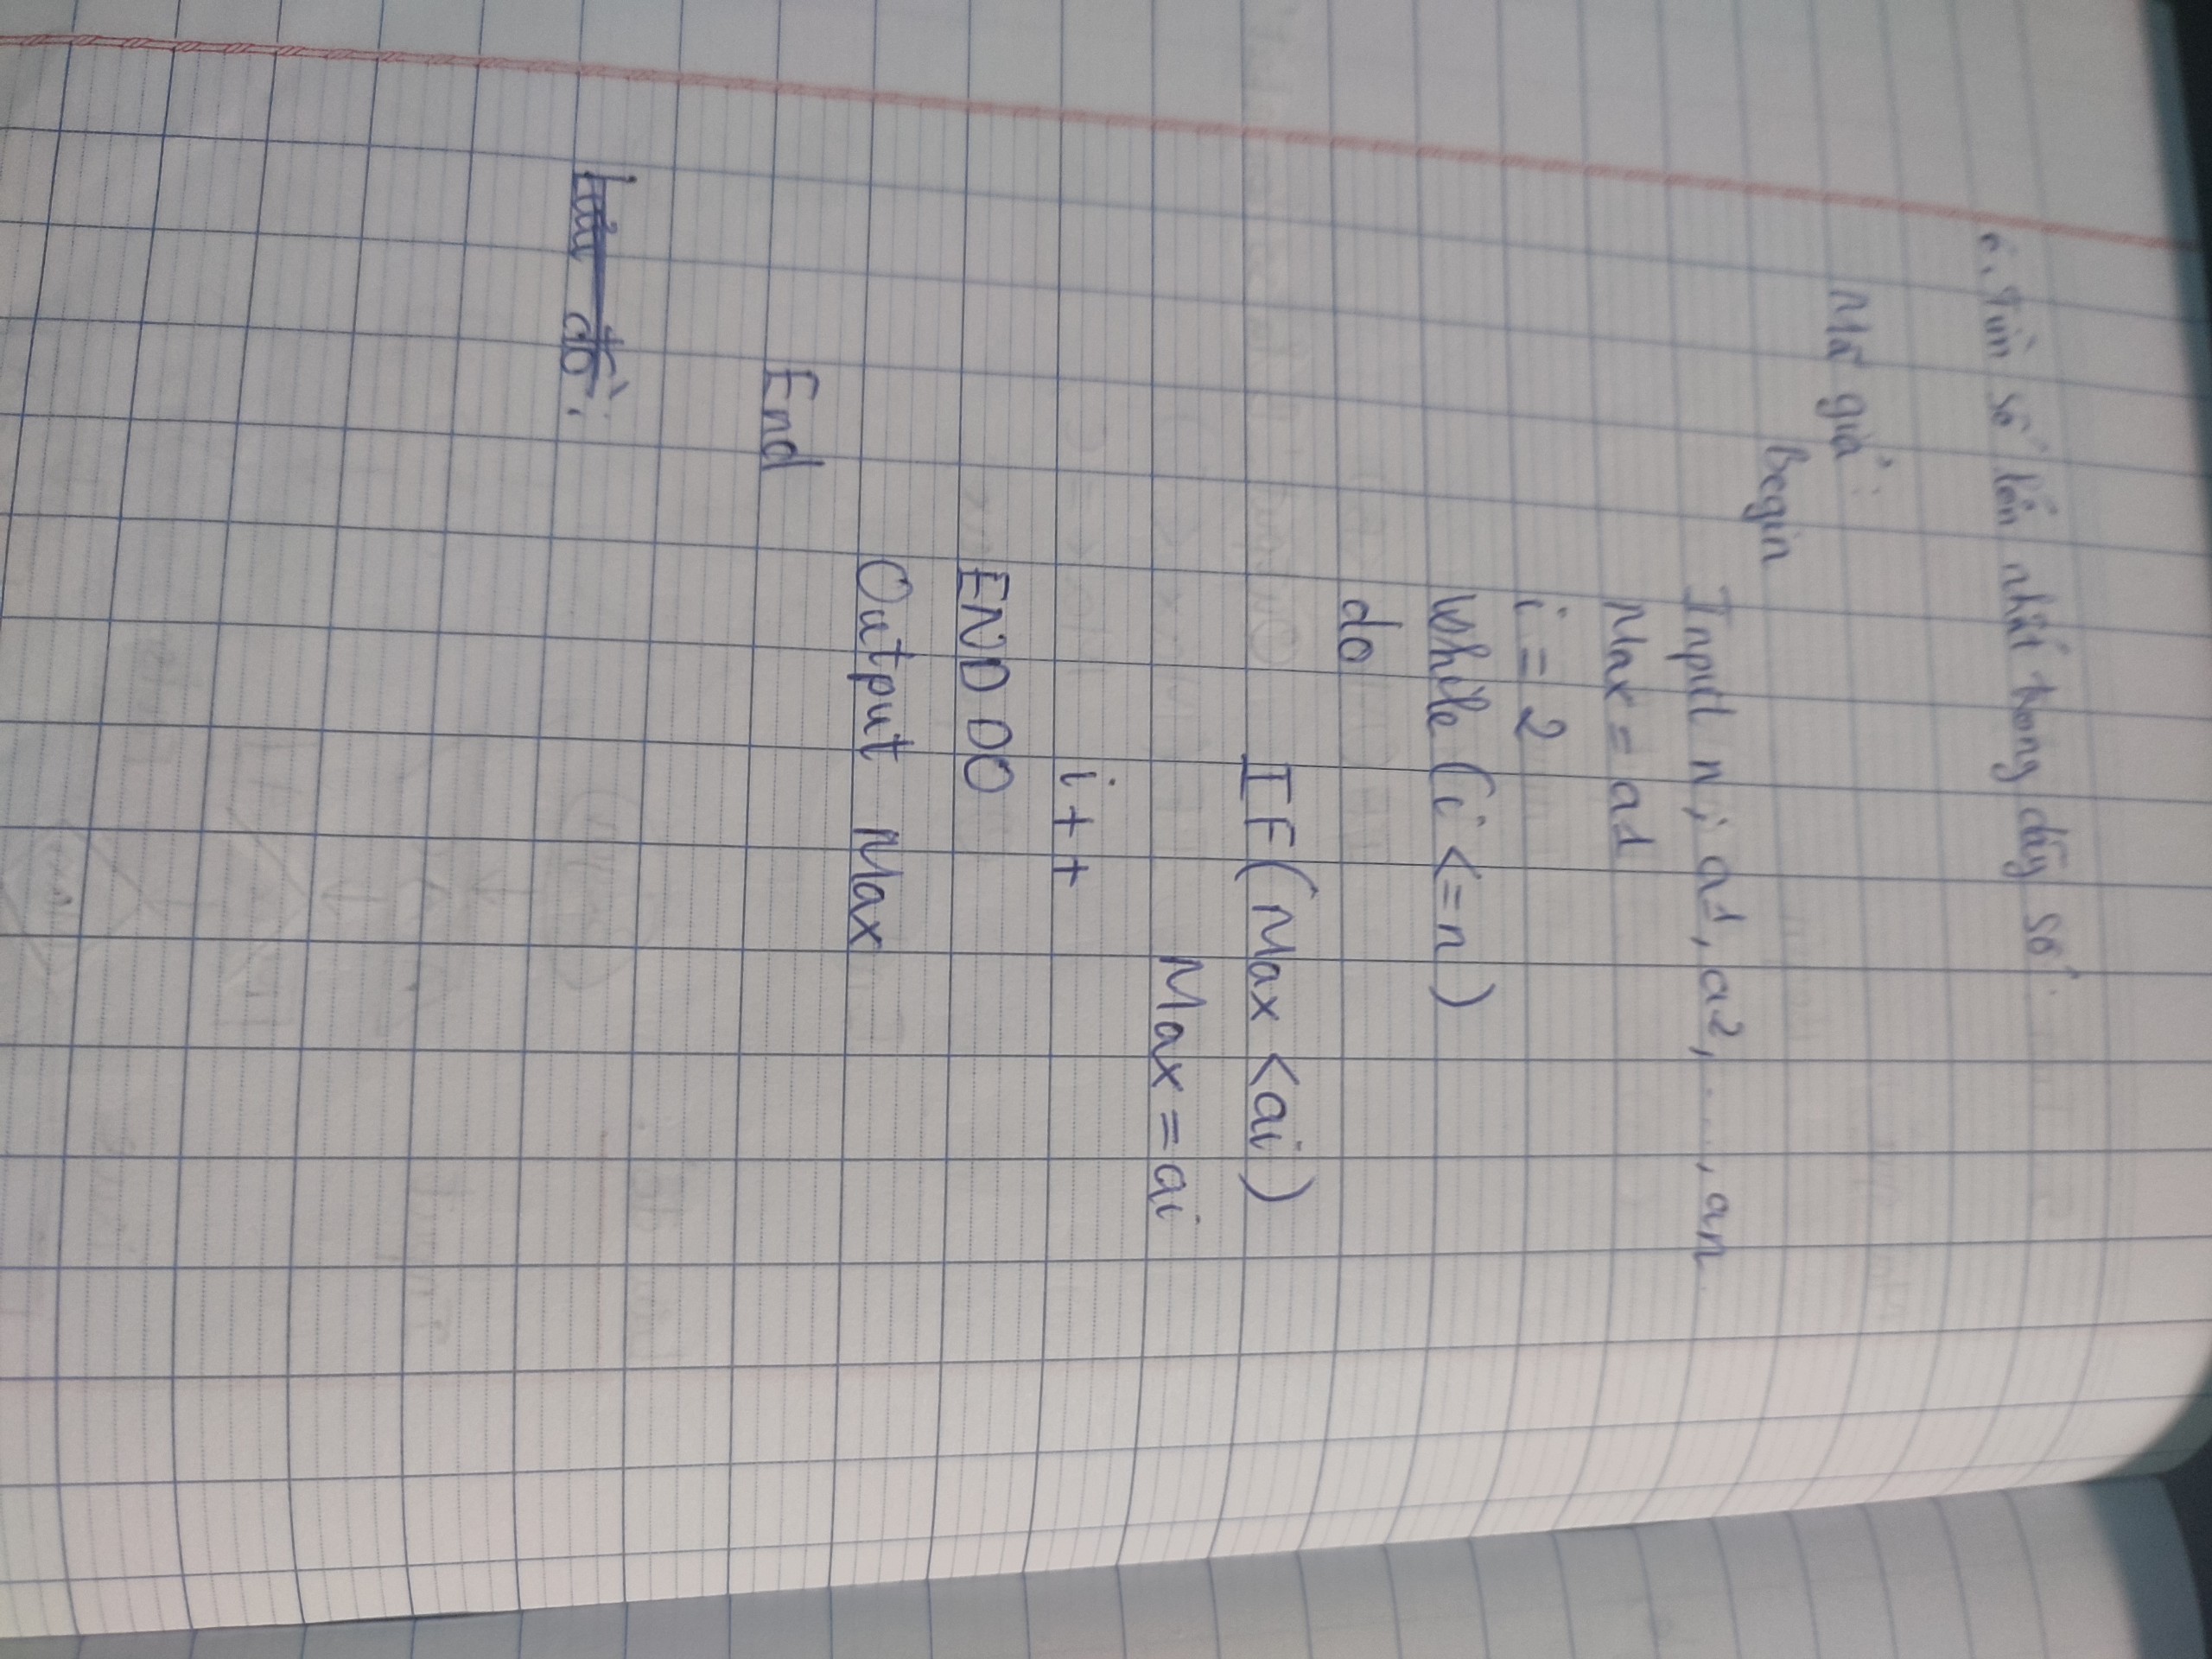 6. Tìm số lớn nhất trong dãy số:
Mã giả:
Begin
Input n; a1, a2, ...., an
Max = a1
i = 2
While (i <= n)
do
IF (Max < ai)
Max = ai
i++
END DO
Output Max
End
Lưu đồ: